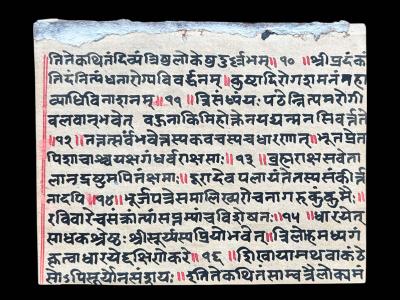 तिते कथितं दिव्यं त्रिषु लोकेषु दुर्लभम् ॥ १० ॥ श्रीप्रदं कां
तिदं नित्यं धनारोग्यविवर्द्धनम् ॥ कुष्ठादिरोगशमनं महा
व्याधिविनाशनम् ॥ ११ ॥ त्रिसंध्यं यः पठेन्नित्यमरोगी
बलवान् भवेत् बहुनाकिमिहोक्तेन यद्यन्मनसिवर्त्तते
॥ १२ ॥ तत्तत्सर्वं भवेत्तस्य कवचस्य च धारणात् ॥ भूतप्रेत
पिशाचाश्च यक्षगंधर्वराक्षसाः ॥ १३ ॥ ब्रह्मराक्षसवेता
ला न द्रष्टुमपि तं क्षमाः ॥ दूरादेव पलायंते तस्य संकीर्त्त
नादपि ॥ १४ ॥ भूर्जपत्रे समालिख्य रोचनागरुकुंकुमैः ॥
रविवारे च संक्रांत्यां सप्तम्यां च विशेषतः ॥ १५ ॥ धारयेत्
साधकश्रेष्ठः श्रीसूर्यस्य प्रियो भवेत् ॥ त्रिलोहमध्यगं
कृत्वा धारयेद्दक्षिणे करे ॥ १६ ॥ शिखायामथवा कंठे
सोऽपि सूर्यो न संशयः ॥ इति ते कथितं सांब त्रैलोक्यमं